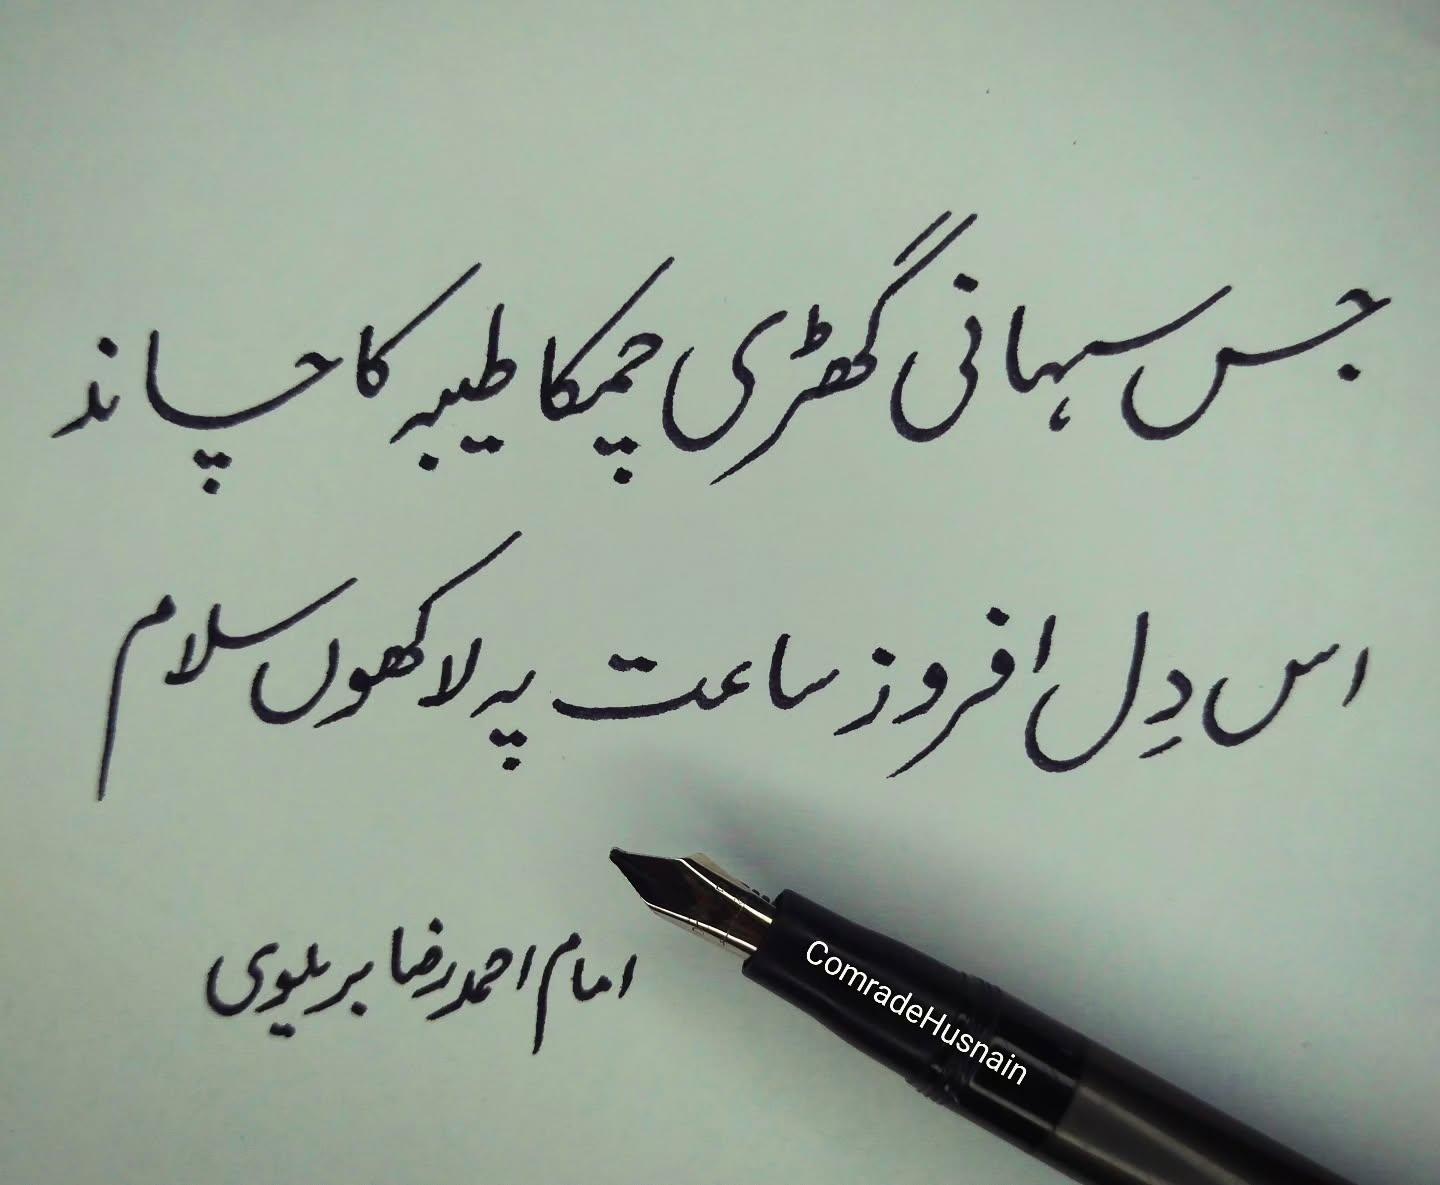 جس سہانی گھڑی چمکا طیبہ کا چاند
اس دِل افروز ساعت پہ لاکھوں سلام
امام احمد رضا بریلوی
ComradeHusnain